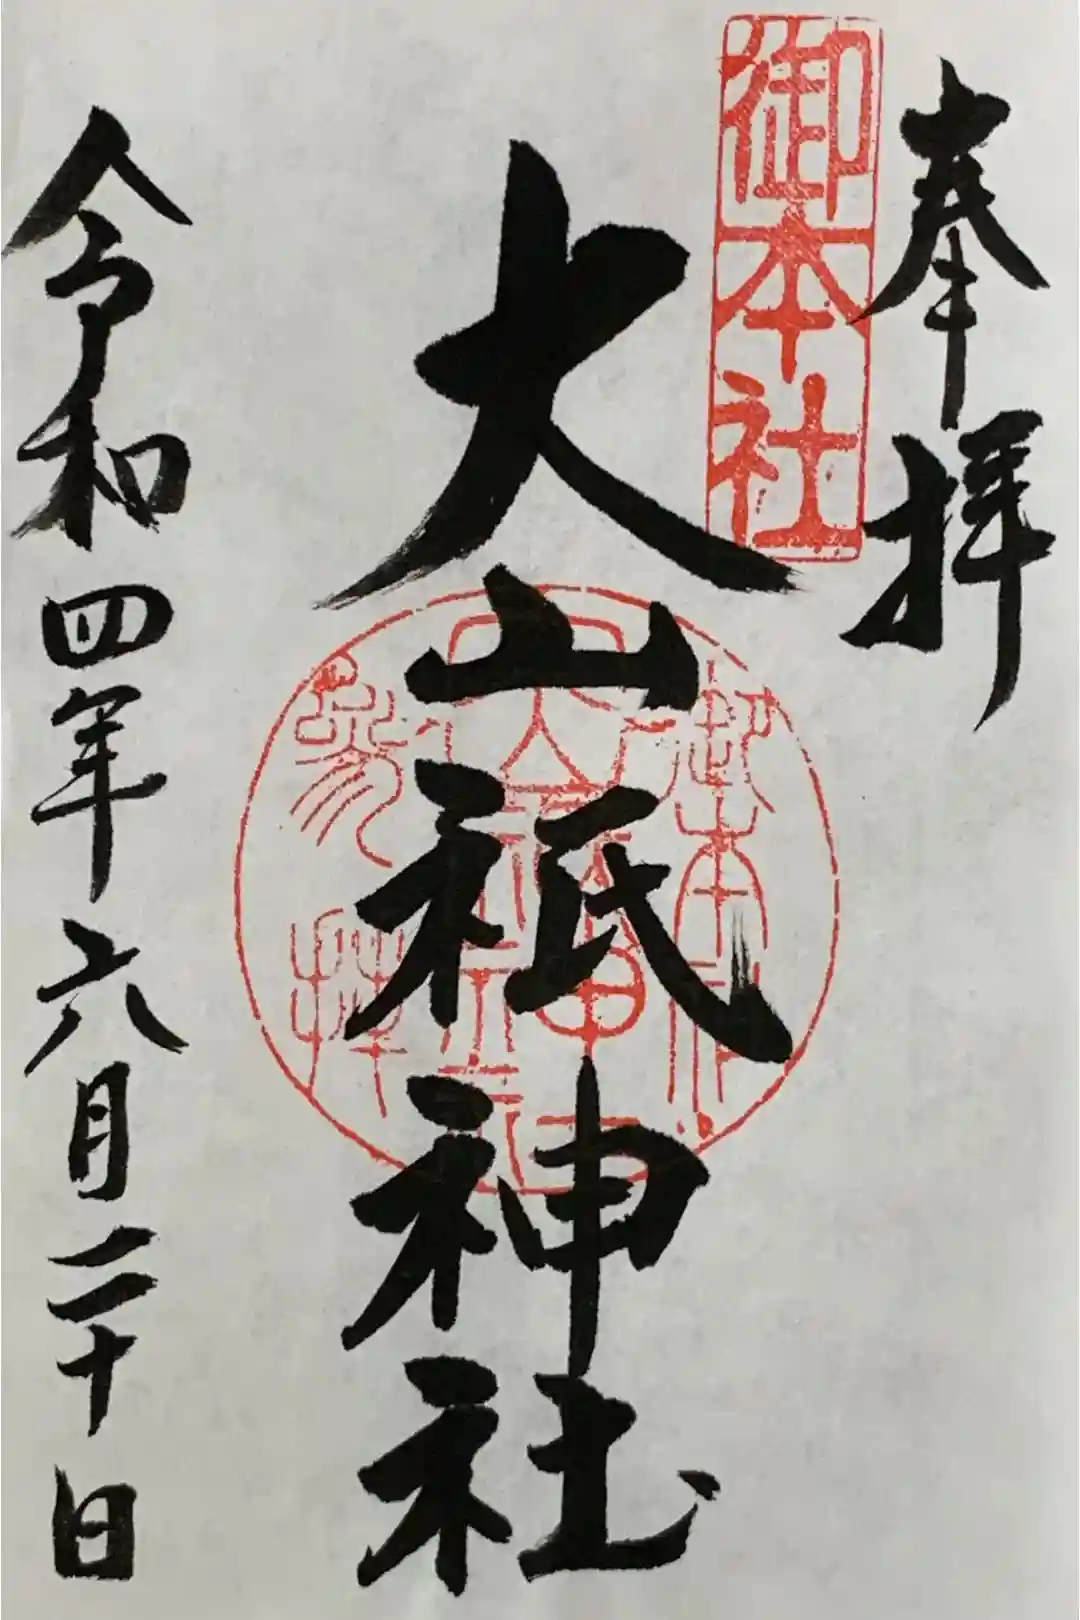 奉拝
御本社
大山祇神社
令和四年六月二十日